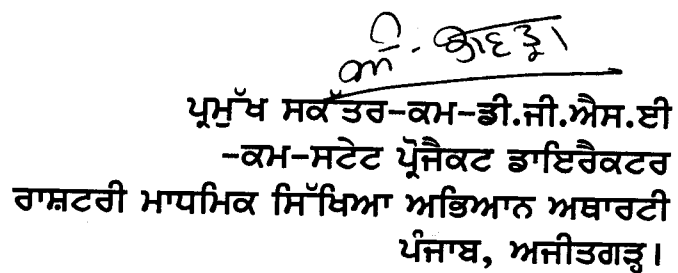 ਪ੍ਰਮੁੱਖ ਸਕੱਤਰ-ਕਮ-ਡੀ.ਜੀ.ਐਸ.ਈ
-ਕਮ-ਸਟੇਟ ਪ੍ਰੋਜੈਕਟ ਡਾਇਰੈਕਟਰ
ਰਾਸ਼ਟਰੀ ਮਾਧਮਿਕ ਸਿੱਖਿਆ ਅਭਿਆਨ ਅਥਾਰਟੀ
ਪੰਜਾਬ, ਅਜੀਤਗੜ੍ਹ।